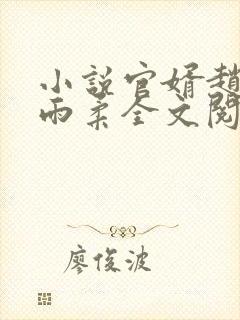 小說官婿趙
雨柔全文閱
廖俊波